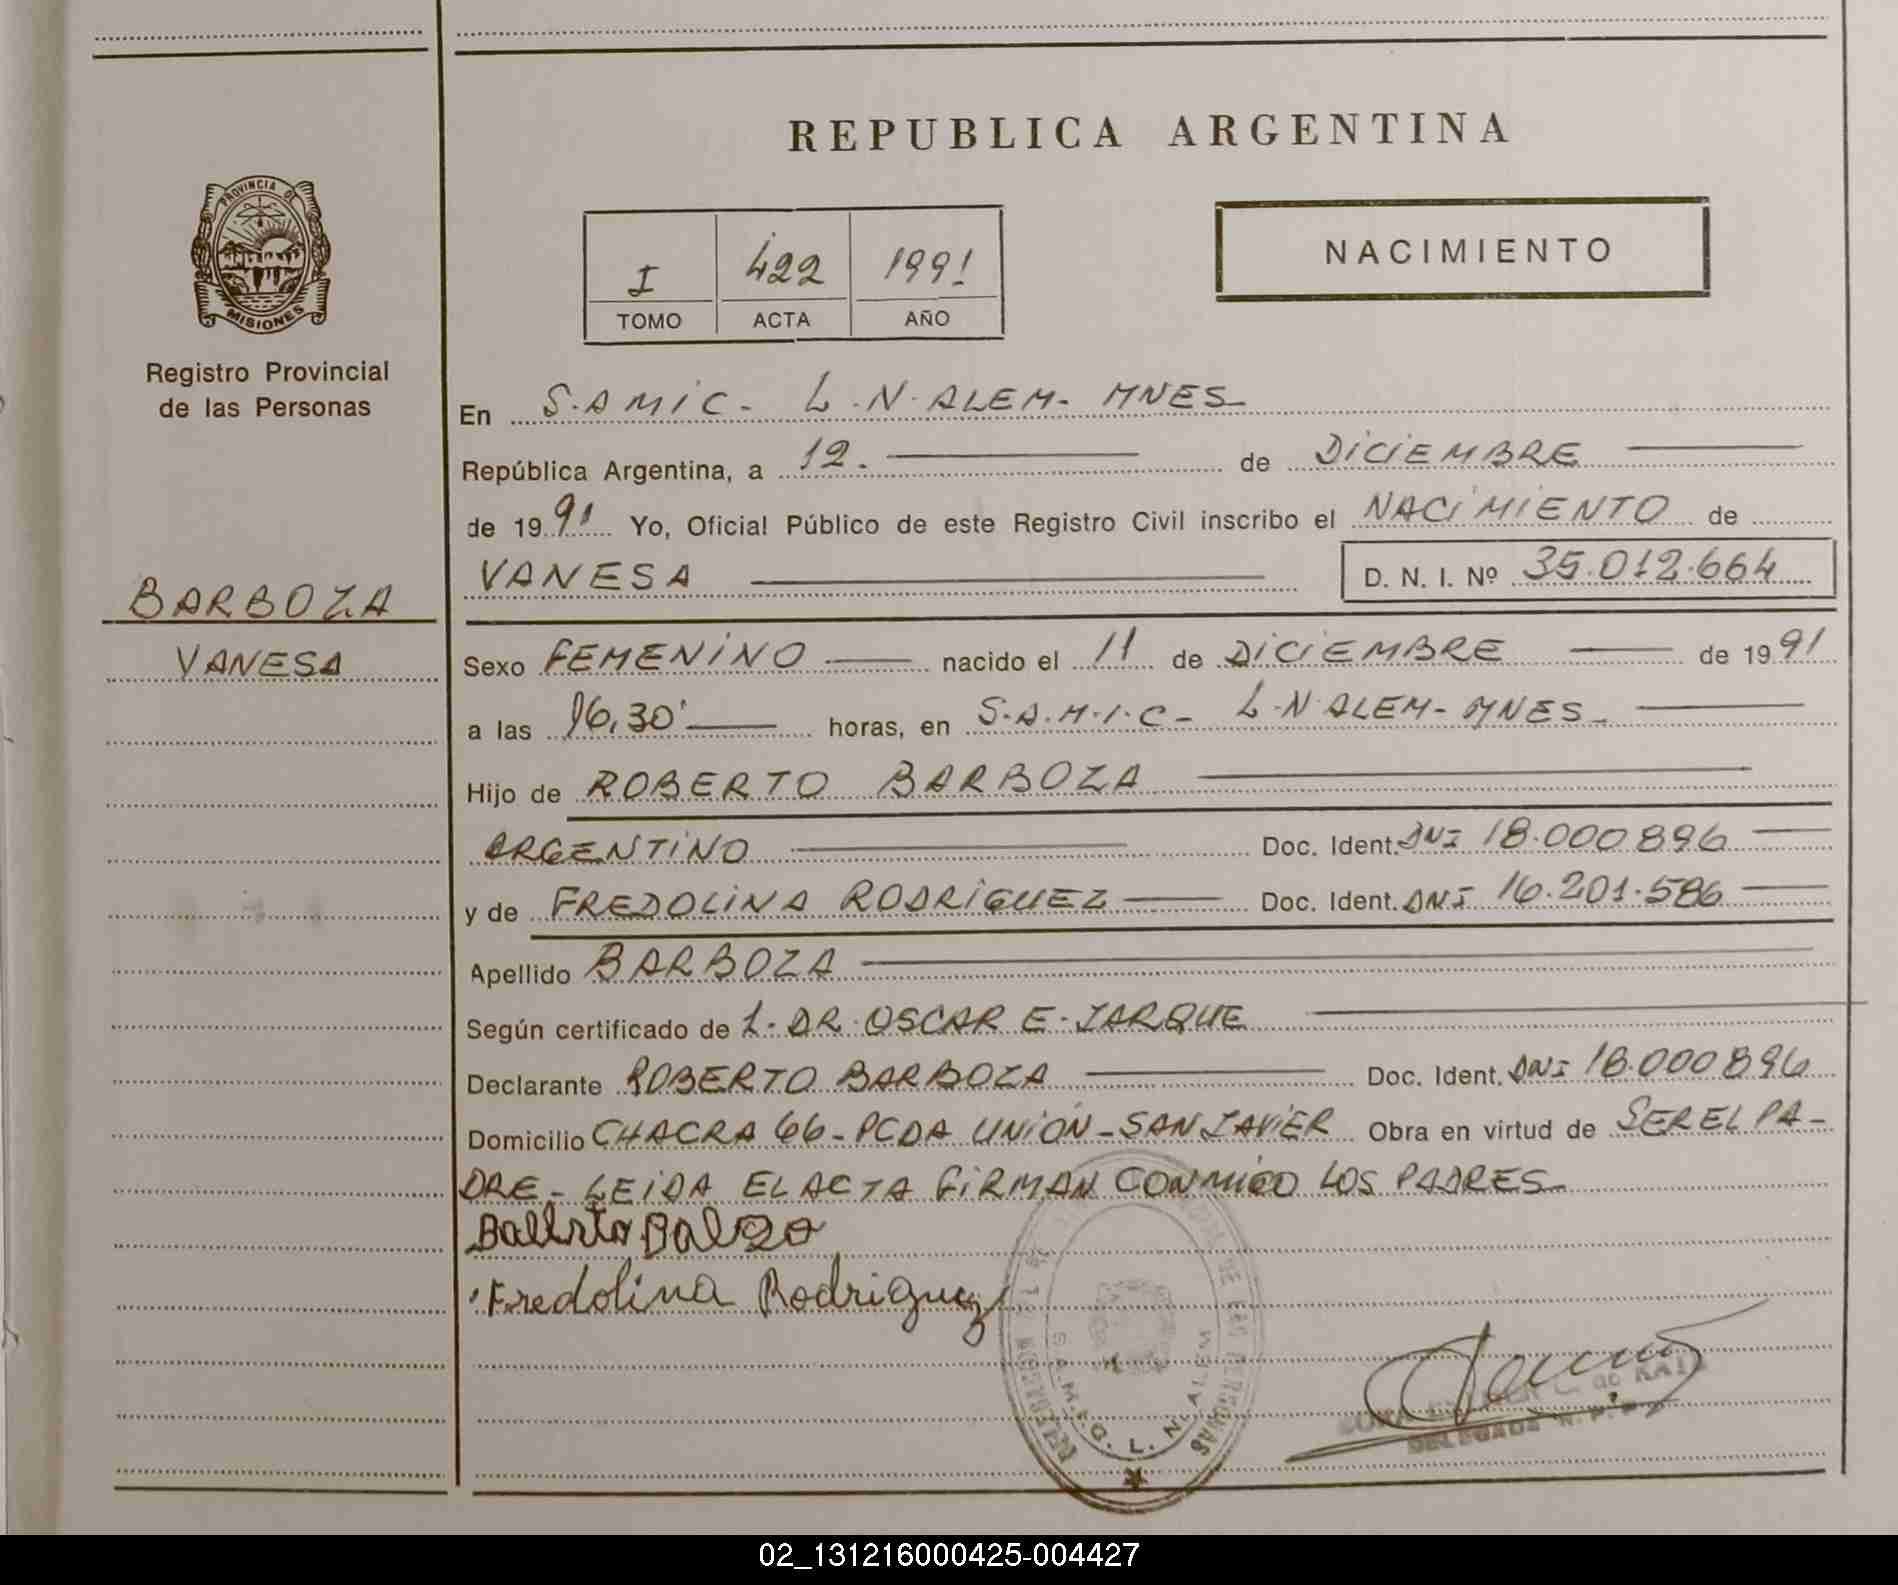 REPUBLICA ARGENTINA
PROVINCIA DE
MISIONES
Registro Provincial
de las Personas
I 422 1991
TOMO ACTA AÑO
NACIMIENTO
En S.AMIC- L.N.ALEM- MNES
República Argentina, a 12. de DICIEMBRE
de 1991 Yo, Oficial Público de este Registro Civil inscribo el NACIMIENTO de
VANESA D. N. I. Nº 35.012.664
BARBOZA
VANESA
Sexo FEMENINO nacido el 11 de DICIEMBRE de 1991
a las 16,30' horas, en S.A.M.I.C- L.N.ALEM- MNES
Hijo de ROBERTO BARBOZA
ARGENTINO Doc. Ident. DNI 18.000896
y de FREDOLINA RODRIGUEZ Doc. Ident. DNI 16.201.586
Apellido BARBOZA
Según certificado de L. DR. OSCAR E. JARQUE
Declarante ROBERTO BARBOZA Doc. Ident. DNI 18.000896
Domicilio CHACRA 66- PCDA UNIÓN- SAN JAVIER Obra en virtud de SER EL PA-
DRE- LEIDA EL ACTA FIRMAN CONMIGO LOS PADRES
Fredolina Rodriguez
DE LAS PERSONAS
L. N. ALEM
DELEGADA
02_131216000425-004427